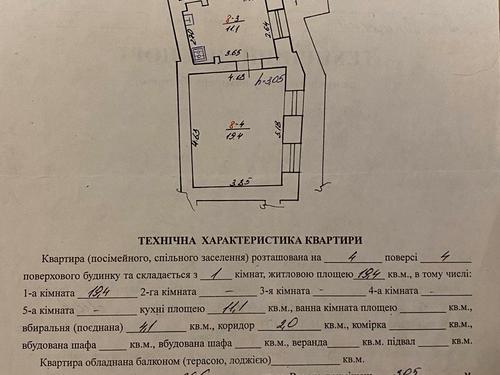 8-3
11,1
2.64
2.70
3.65
4.65 h=3,05
8-4
19.4
4.63
5.18
3.85
ТЕХНІЧНА ХАРАКТЕРИСТИКА КВАРТИРИ
Квартира (посімейного, спільного заселення) розташована на 4 поверсі 4
поверхового будинку та складається з 1 кімнат, житловою площею 19,4 кв.м., в тому числі:
1-а кімната 19,4 2-га кімната – 3-я кімната - 4-а кімната -
5-а кімната - кухні площею 11,1 кв.м., ванна кімната площею кв.м.,
вбиральня (поєднана) 4,1 кв.м., коридор 2,0 кв.м., комірка кв.м.,
вбудована шафа кв.м., вбудована шафа кв.м., веранда кв.м. підвал кв.м.
Квартира обладнана балконом (терасою, лоджією) кв.м.